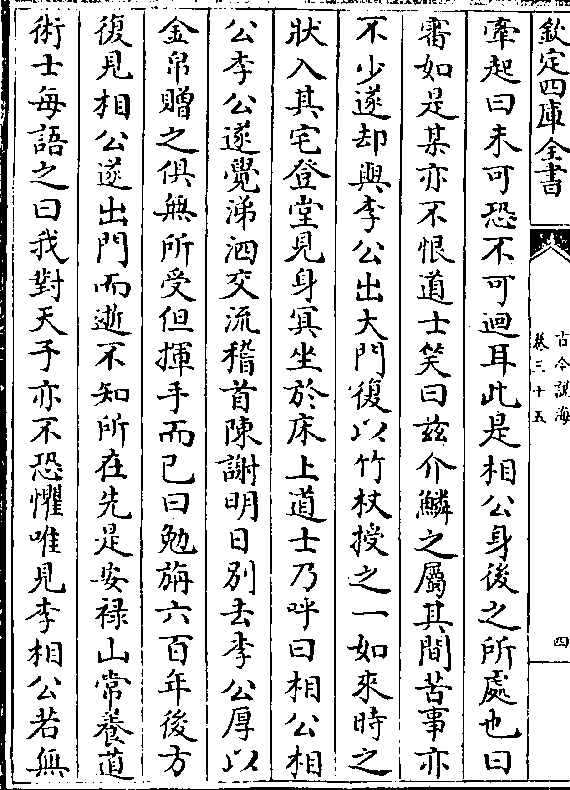 欽定四庫全書
古今說海
卷三十五
四
牽起曰未可恐不可迴耳此是相公身後之所處也曰
審如是某亦不恨道士笑曰茲介鱗之屬其間苦事亦
不少遂却與李公出大門復以竹杖授之一如來時之
狀入其宅登堂見身冥坐於床上道士乃呼曰相公相
公李公遂覺涕泗交流稽首陳謝明日別去李公厚以
金帛贈之俱無所受但揮手而已曰勉旃六百年後方
復見相公遂出門而逝不知所在先是安祿山常養道
術士每語之曰我對天子亦不恐懼唯見李相公若無